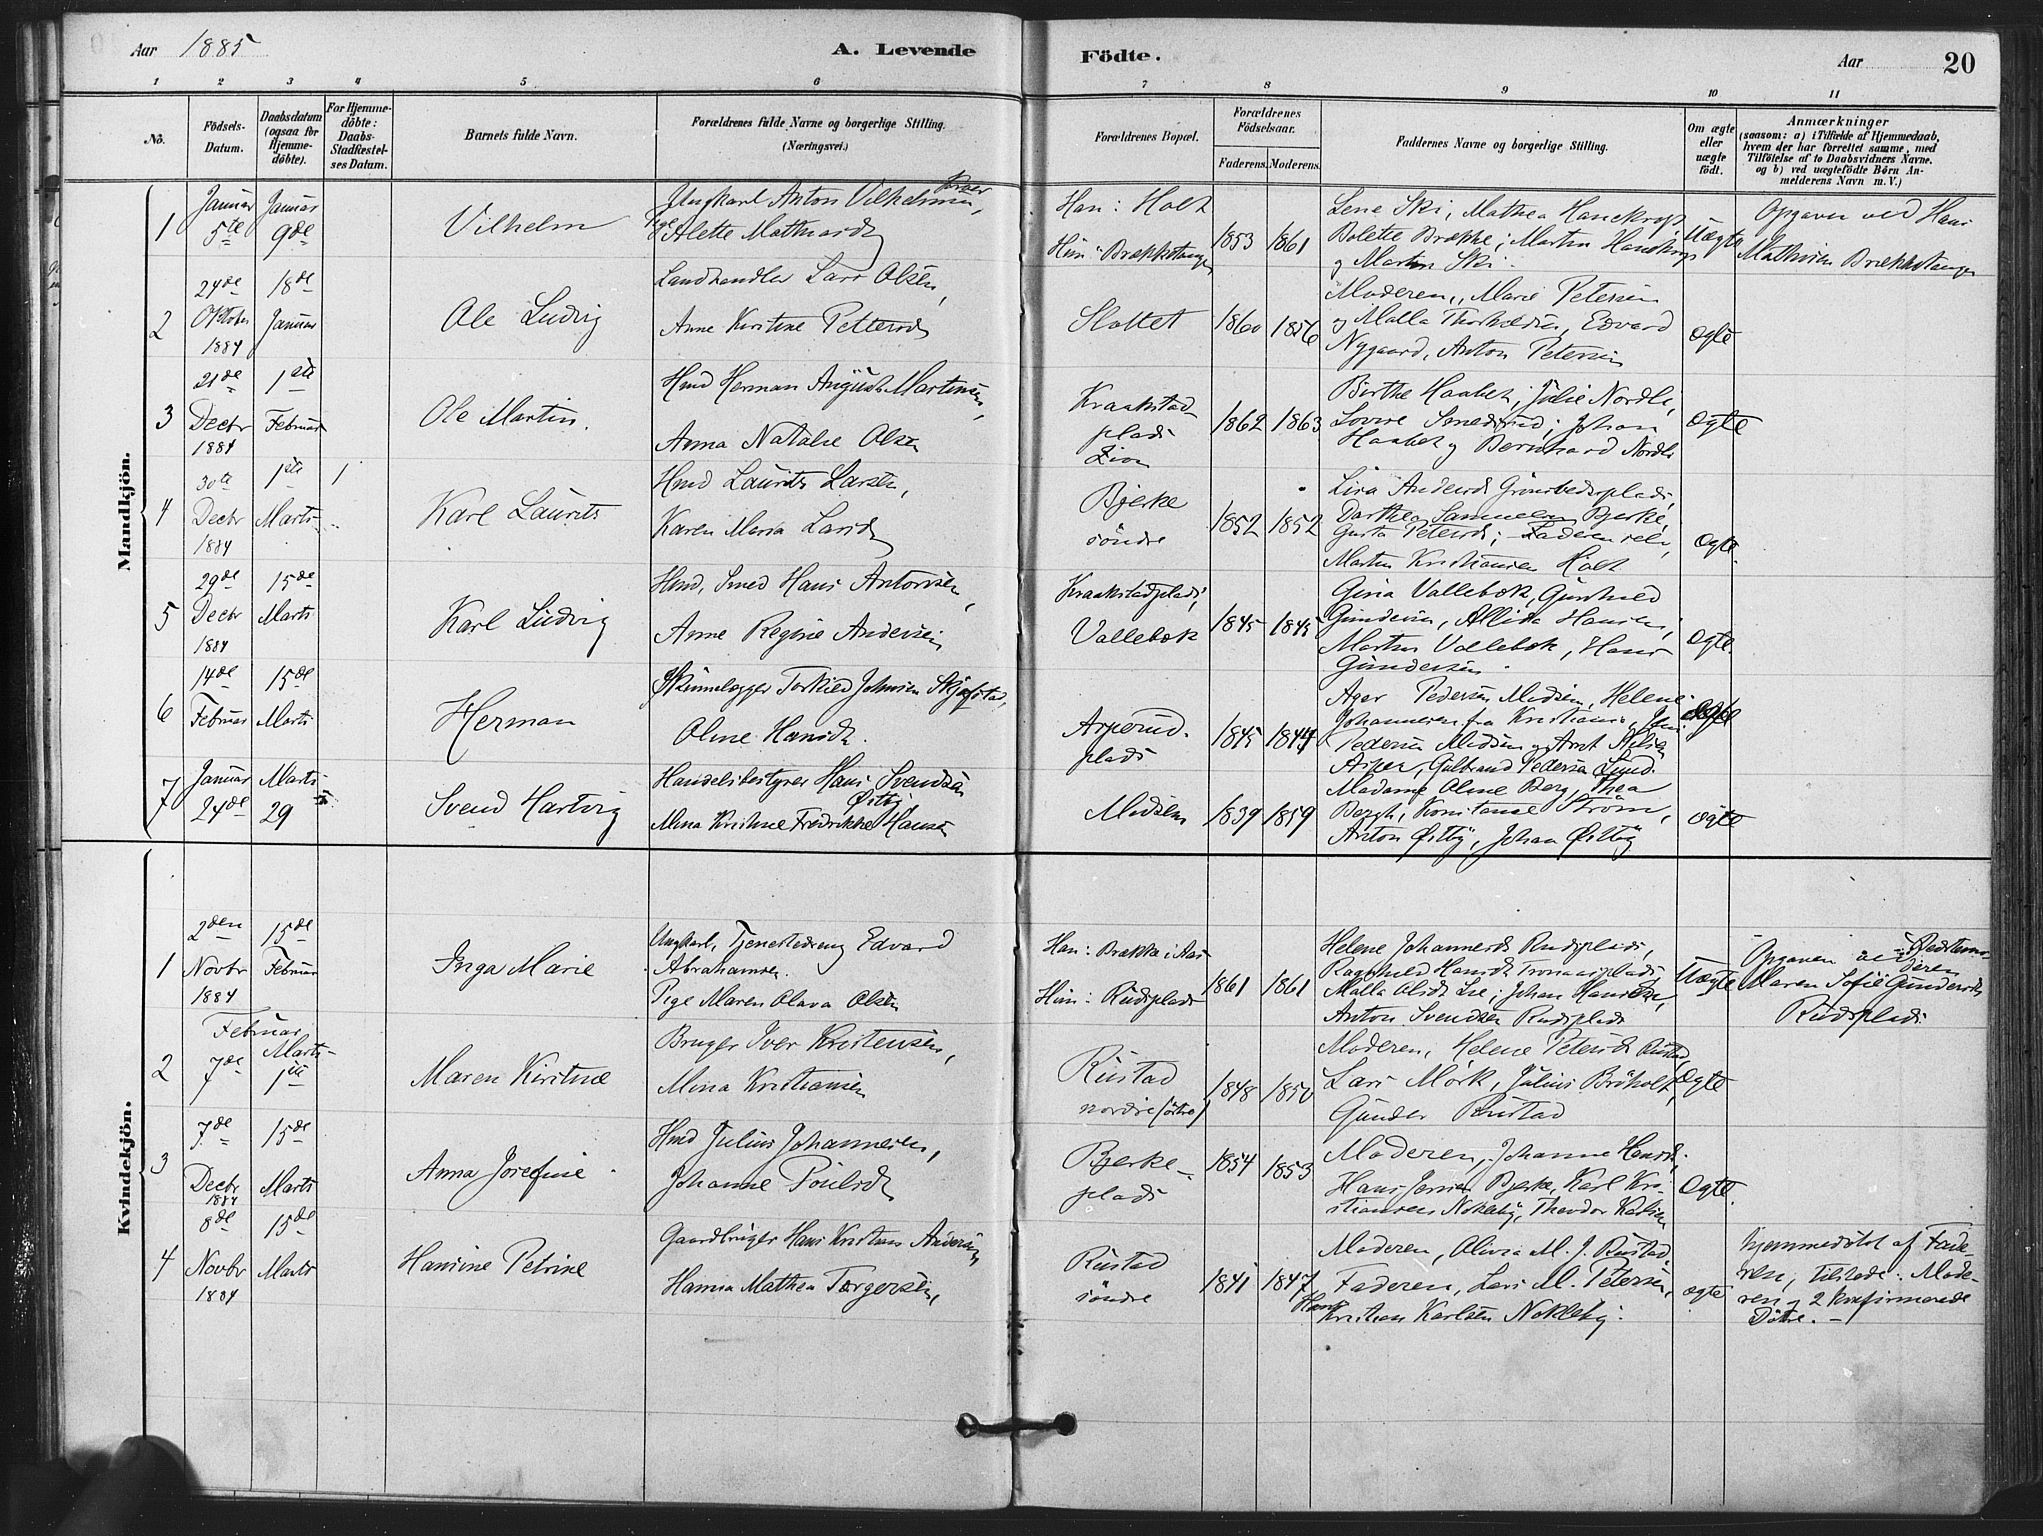 Aar 1885 A. Levende Födte. Aar 20
1 2 3 4 5 6 7 8 9 10 11
No.
Födsels-Datum.
Daabsdatum (ogsaa for Hjemme-döbte).
For Hjemme-döbte: Daabs-Stadfæstel-ses Datum.
Barnets fulde Navn.
Forældrenes fulde Navne og borgerlige Stilling.
(Næringsvei.)
Forældrenes Bopæl.
Forældrenes Födselsaar.
Faderens. Moderens.
Faddernes Navne og borgerlige Stilling.
Om ægte eller uægte födt.
Anmærkninger
(saasom: a) i Tilfælde af Hjemmedaab, hvem der har forrettet samme, med Tilföielse af to Daabsvidners Navne, og b) ved uægtefödte Börn An-melderens Navn m. V.)
Mandkjön.
1 Januar 5te Januar 9de Vilhelm
Ungkarl Anton Vilhelmsen,
Pige Alette Mathiasd.
Han: Holt
Hun: Brækkstangen
1853 1861
Lene Ski, Mathea
Bolette Brække; Martin
og Martin Ski.
Uægte
Opgaven ved Hans
Mathisen Brækkstangen
2 24de Oktober 1884 18de Januar Ole Ludvig
Landhandler Lars Olsen,
Anne Kirstine Pettersd.
Slottet 1860 1856
Moderen, Marie Petersen
og Malla Thorkildsen, Edvard
Nygaard, Anton Petersen
Ægte
3 21de Decbr 1884 1ste Februar Ole Martin.
Hmd Herman August Martinsen,
Anna Natalie Olsen
Kraakstad-
plads
Zion
1862 1863
Birthe Haabet, Julie Nordli,
Lovise Smedsrud; Johan
Haabet og Bernhard Nordli
Ægte
4 30te Decbr 1884 1ste Marts 1 Karl Laurits
Hmd Laurits Larsen,
Karen Maria Larsd.
Bjerke
söndre
1852 1852
Lisa Andersd.
Dorthea Samuelsen Bjerke,
Gusta Petersd; Faderen selv,
Martin Kristiansen Holt
Ægte.
5 29de Decbr 1884 15de Marts Karl Ludvig
Hmd, Smed Hans Antonsen,
Anne Regine Andersen
Kraakstadplads,
Vallebæk
1845 1845
Gina Vallebæk, Gunhild
Gundersen, Allida Hansen,
Martin Vallebæk, Hans
Gundersen.
Ægte.
6 14de Februar 15de Marts Herman
Skindlægger Torkild Johnsen Skjöfstad,
Oline Hansd.
Asperud-
plads
1845 1844
Ager Pedersen Midsem, Helene
Johannesen fra Kristiania, Jens
Pedersen Midsem og Arnt Nilsen
Asper, Gulbrand Pedersen Sund.
Ægte
7 Januar 24de Marts 29 Svend Hartvig
Handelsbestyrer Hans Svendsen
Östby,
Mina Kristine Fredrikke Hansen
Midsem 1839 1859
Madame Oline Berg, Thea
Bergh, Konstanse Ström,
Anton Östby, Johan Östby
Ægte
Kvindekjön.
1 2den Novbr 1884 15de Februar Inga Marie
Ungkarl, Tjenestedreng Edvard
Abrahamsen.
Pige Maren Olava Olsen
Han: Brække i Aas
Hun: Rudsplads
1861 1861
Helene Johannesd. Rudsplads,
Ragnhild Hansd.
Malla Olsd. Lie; Johan Hansen,
Anton Svendsen Rudsplads
Uægte
Opgaven ved Bedstemo-
deren
Maren Sofie Gundersd.
Rudsplads
2 Februar 7de Marts 1ste Maren Kirstine
Bruger Iver Kristensen,
Mina Kristiansen
Rustad
nordre (östre)
1848 1850
Moderen, Helene Petersd. Rustad,
Lars Mork, Julius Bröholt,
Gunder Rustad
Ægte
3 7de Decbr 1884 15de Marts Anna Josefine.
Hmd Julius Johannesen,
Johanne Poulsd.
Bjerke-
plads
1854 1853
Moderen, Johanne Hansd.
Hans Jensen Bjerke, Karl Kri-
stiansen Nökleby, Theodor Karlsen
Ægte.
4 8de Novbr 1884 15de Marts Hansine Petrine
Gaardbruger Hans Kristian Andersen
Hanna Mathea Torgersen,
Rustad
söndre
1841 1847
Moderen, Olivia M. J. Rustad,
Faderen, Lars M. Petersen,
Hans
Kristian Karlsen Nökleby.
ægte
hjemmedöbt af Fade-
ren, tilstede: Mode-
ren og 2 konfirmerede
Döttre. –